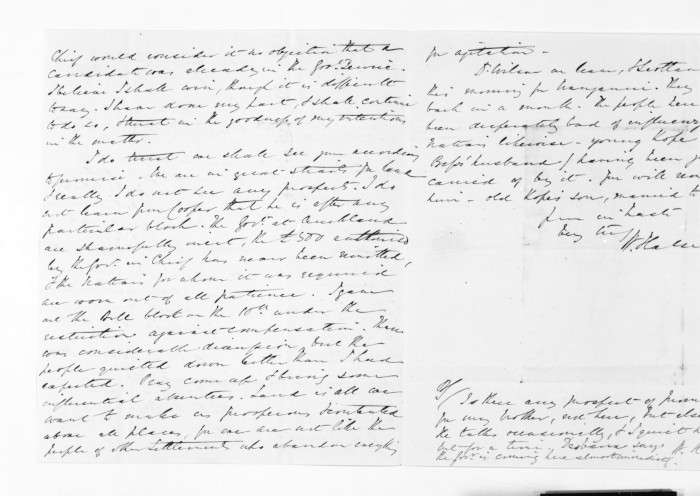 Chief would consider it no objection that a
candidate was already in the Govt. Service.
I believe I shall win, though it is difficult
to say. I have done my part, & shall continue
to do so, & trust in the goodness of my intentions
in the matter.
I do trust we shall see you according
to promise. We are in great straits for land
& really I do not see any prospect. I do
not learn from Cooper that he is after any
particular block. The Govt. at Auckland
are shamefully inert, the £500 authorised
by the Govr. in Chief has never been remitted,
& the Natives for whom it was required
are worn out of all patience. I gave
out the Bell block on the 10th under the
restriction against compensation. There
was considerable disruption, but the
people quieted down better than I had
expected. Pray come up & bring some
influential absentees. Land is all we
want to make us prosperous & contented
above all places, for we are not like the
people of other Settlements who abandon everything
for agitation -
Dr. Wilson on leave, & Scotland
this morning for Wanganui. They
back in a month. The people have
been desperately bad of influenza
Natives likewise - young Hope
Bess's husband / having been
carried off by it. You will
him - old Hope's son, married to
in haste
W. Halse
Is there any prospect of
for my brother, not here, but
He talks occasionally, & I quiet
but for a time. says W. H.
the Govr. is coming here almost immediately.